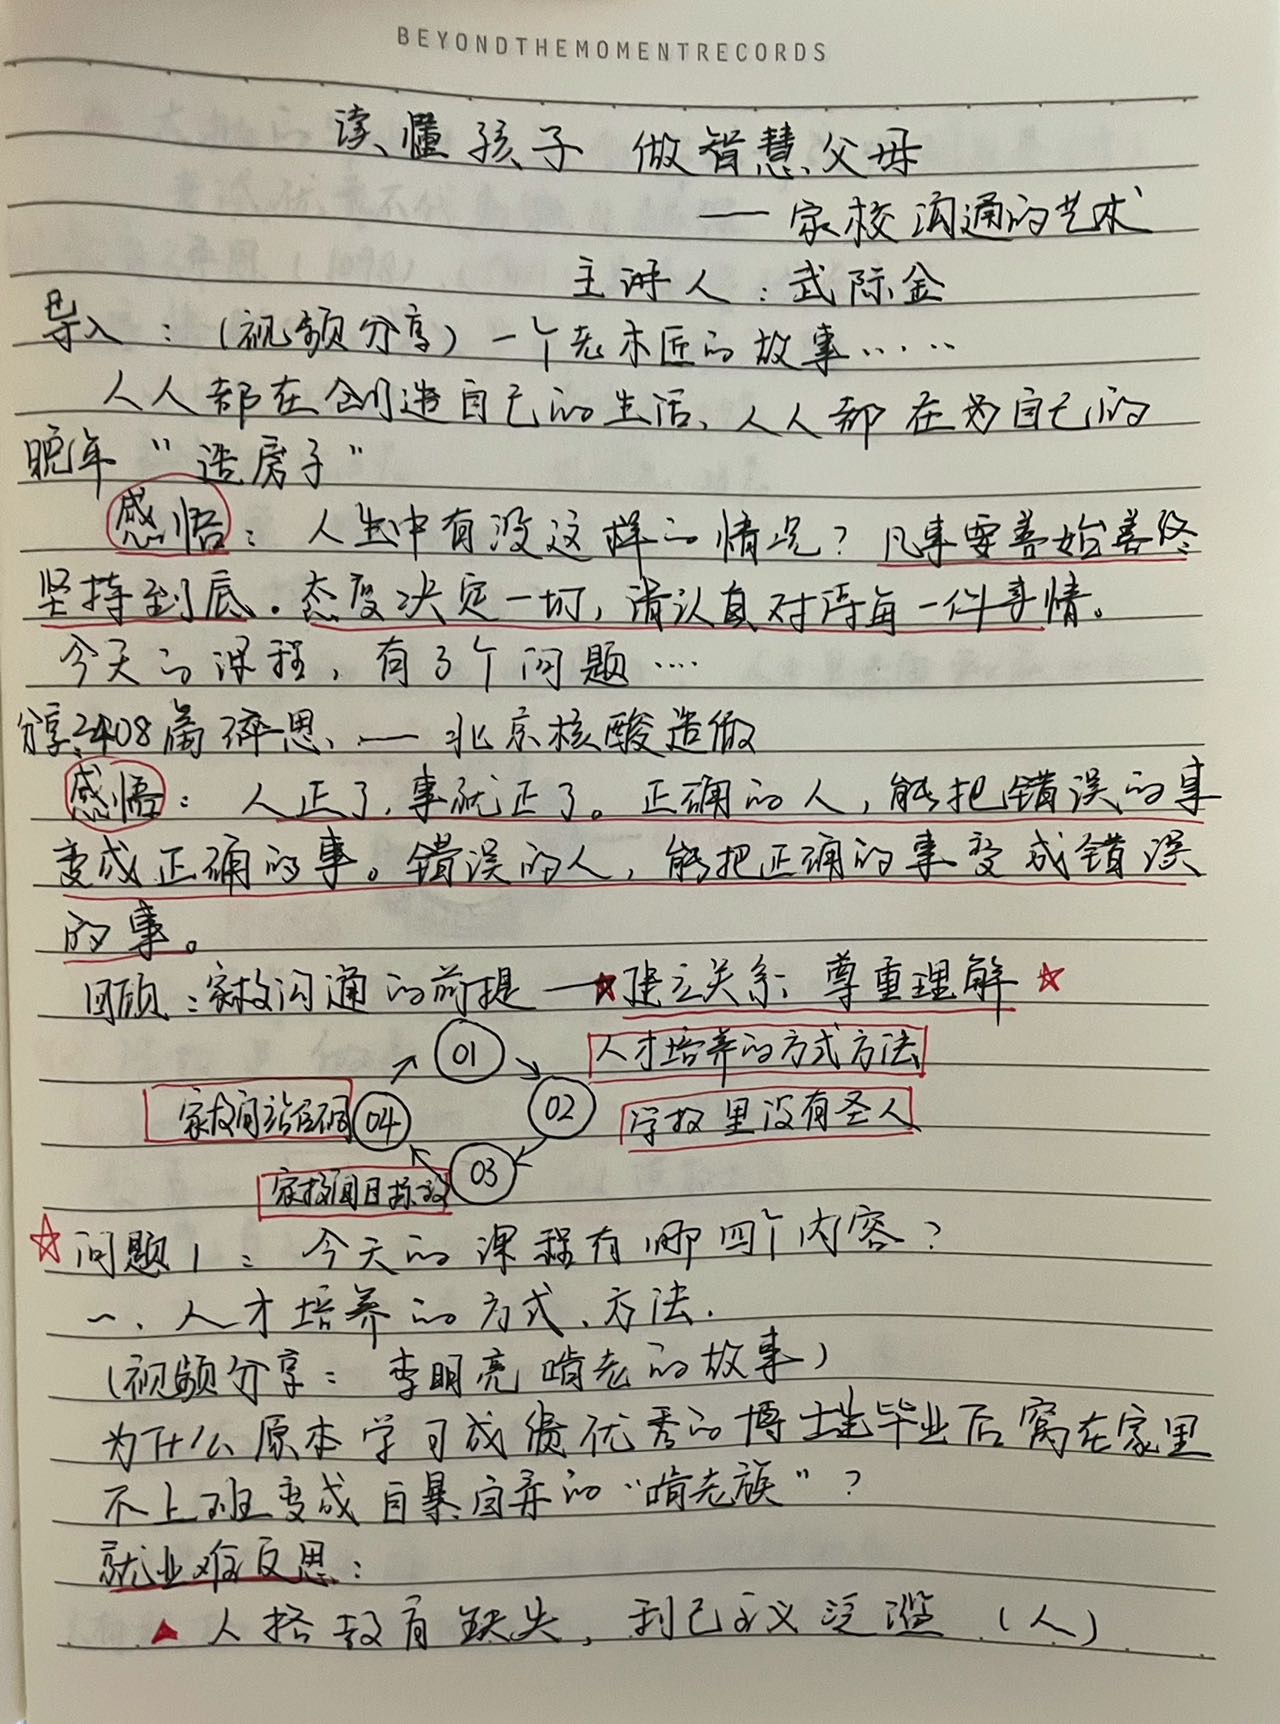 BEYONDTHEMOMENTRECORDS
读懂孩子 做智慧父母
—— 家校沟通的艺术
主讲人：武际金
导入：（视频分享）一个老木匠的故事……
人人都在创造自己的生活、人人都在为自己的
晚年“造房子”
感悟：人生中有没这样的情况？凡事要善始善终
坚持到底。态度决定一切，请认真对待每一件事情。
今天的课程，有3个问题……
分享：2408篇碎思、—— 北京核酸造假
感悟：人正了，事就正了。正确的人，能把错误的事
变成正确的事。错误的人，能把正确的事变成错误
的事。
回顾：家校沟通的前提 —★建立关系：尊重理解☆
01 人才培养的方式方法
02 学校里没有圣人
04
03 家校间目标一致
☆问题1：今天的课程有哪四个内容？
一、人才培养的方式、方法.
（视频分享：李明亮啃老的故事）
为什么原本学习成绩优秀的博士生毕业后窝在家里
不上班变成自暴自弃的“啃老族”？
就业难反思：
▲人格教育缺失，利己主义泛滥（人）